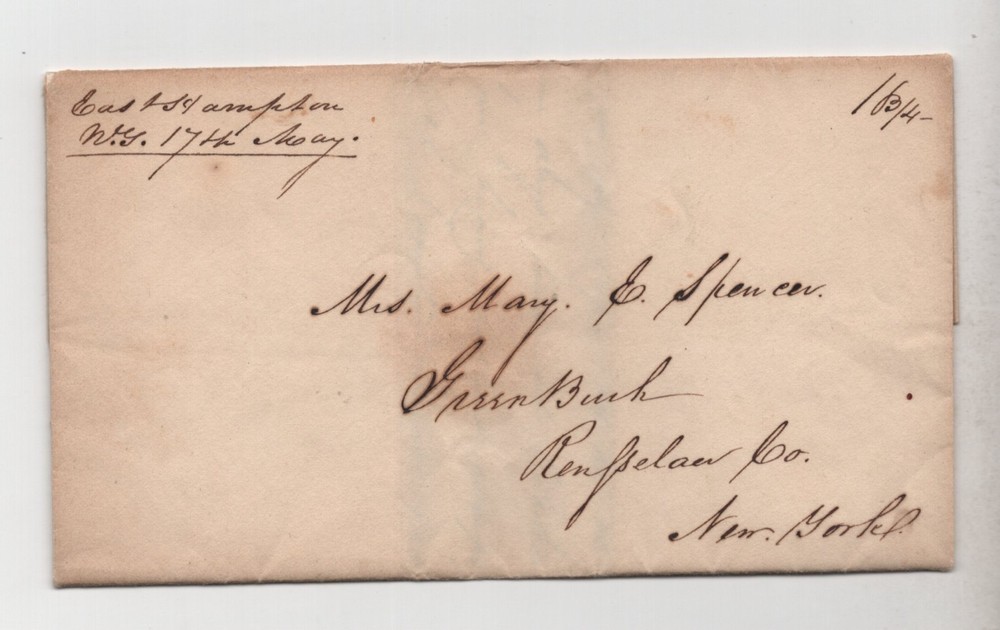 East Hampton
N.Y. 17th May.
18 3/4
Mrs. Mary. E. Spencer.
GreenBush
Rensselaer Co.
New. York.